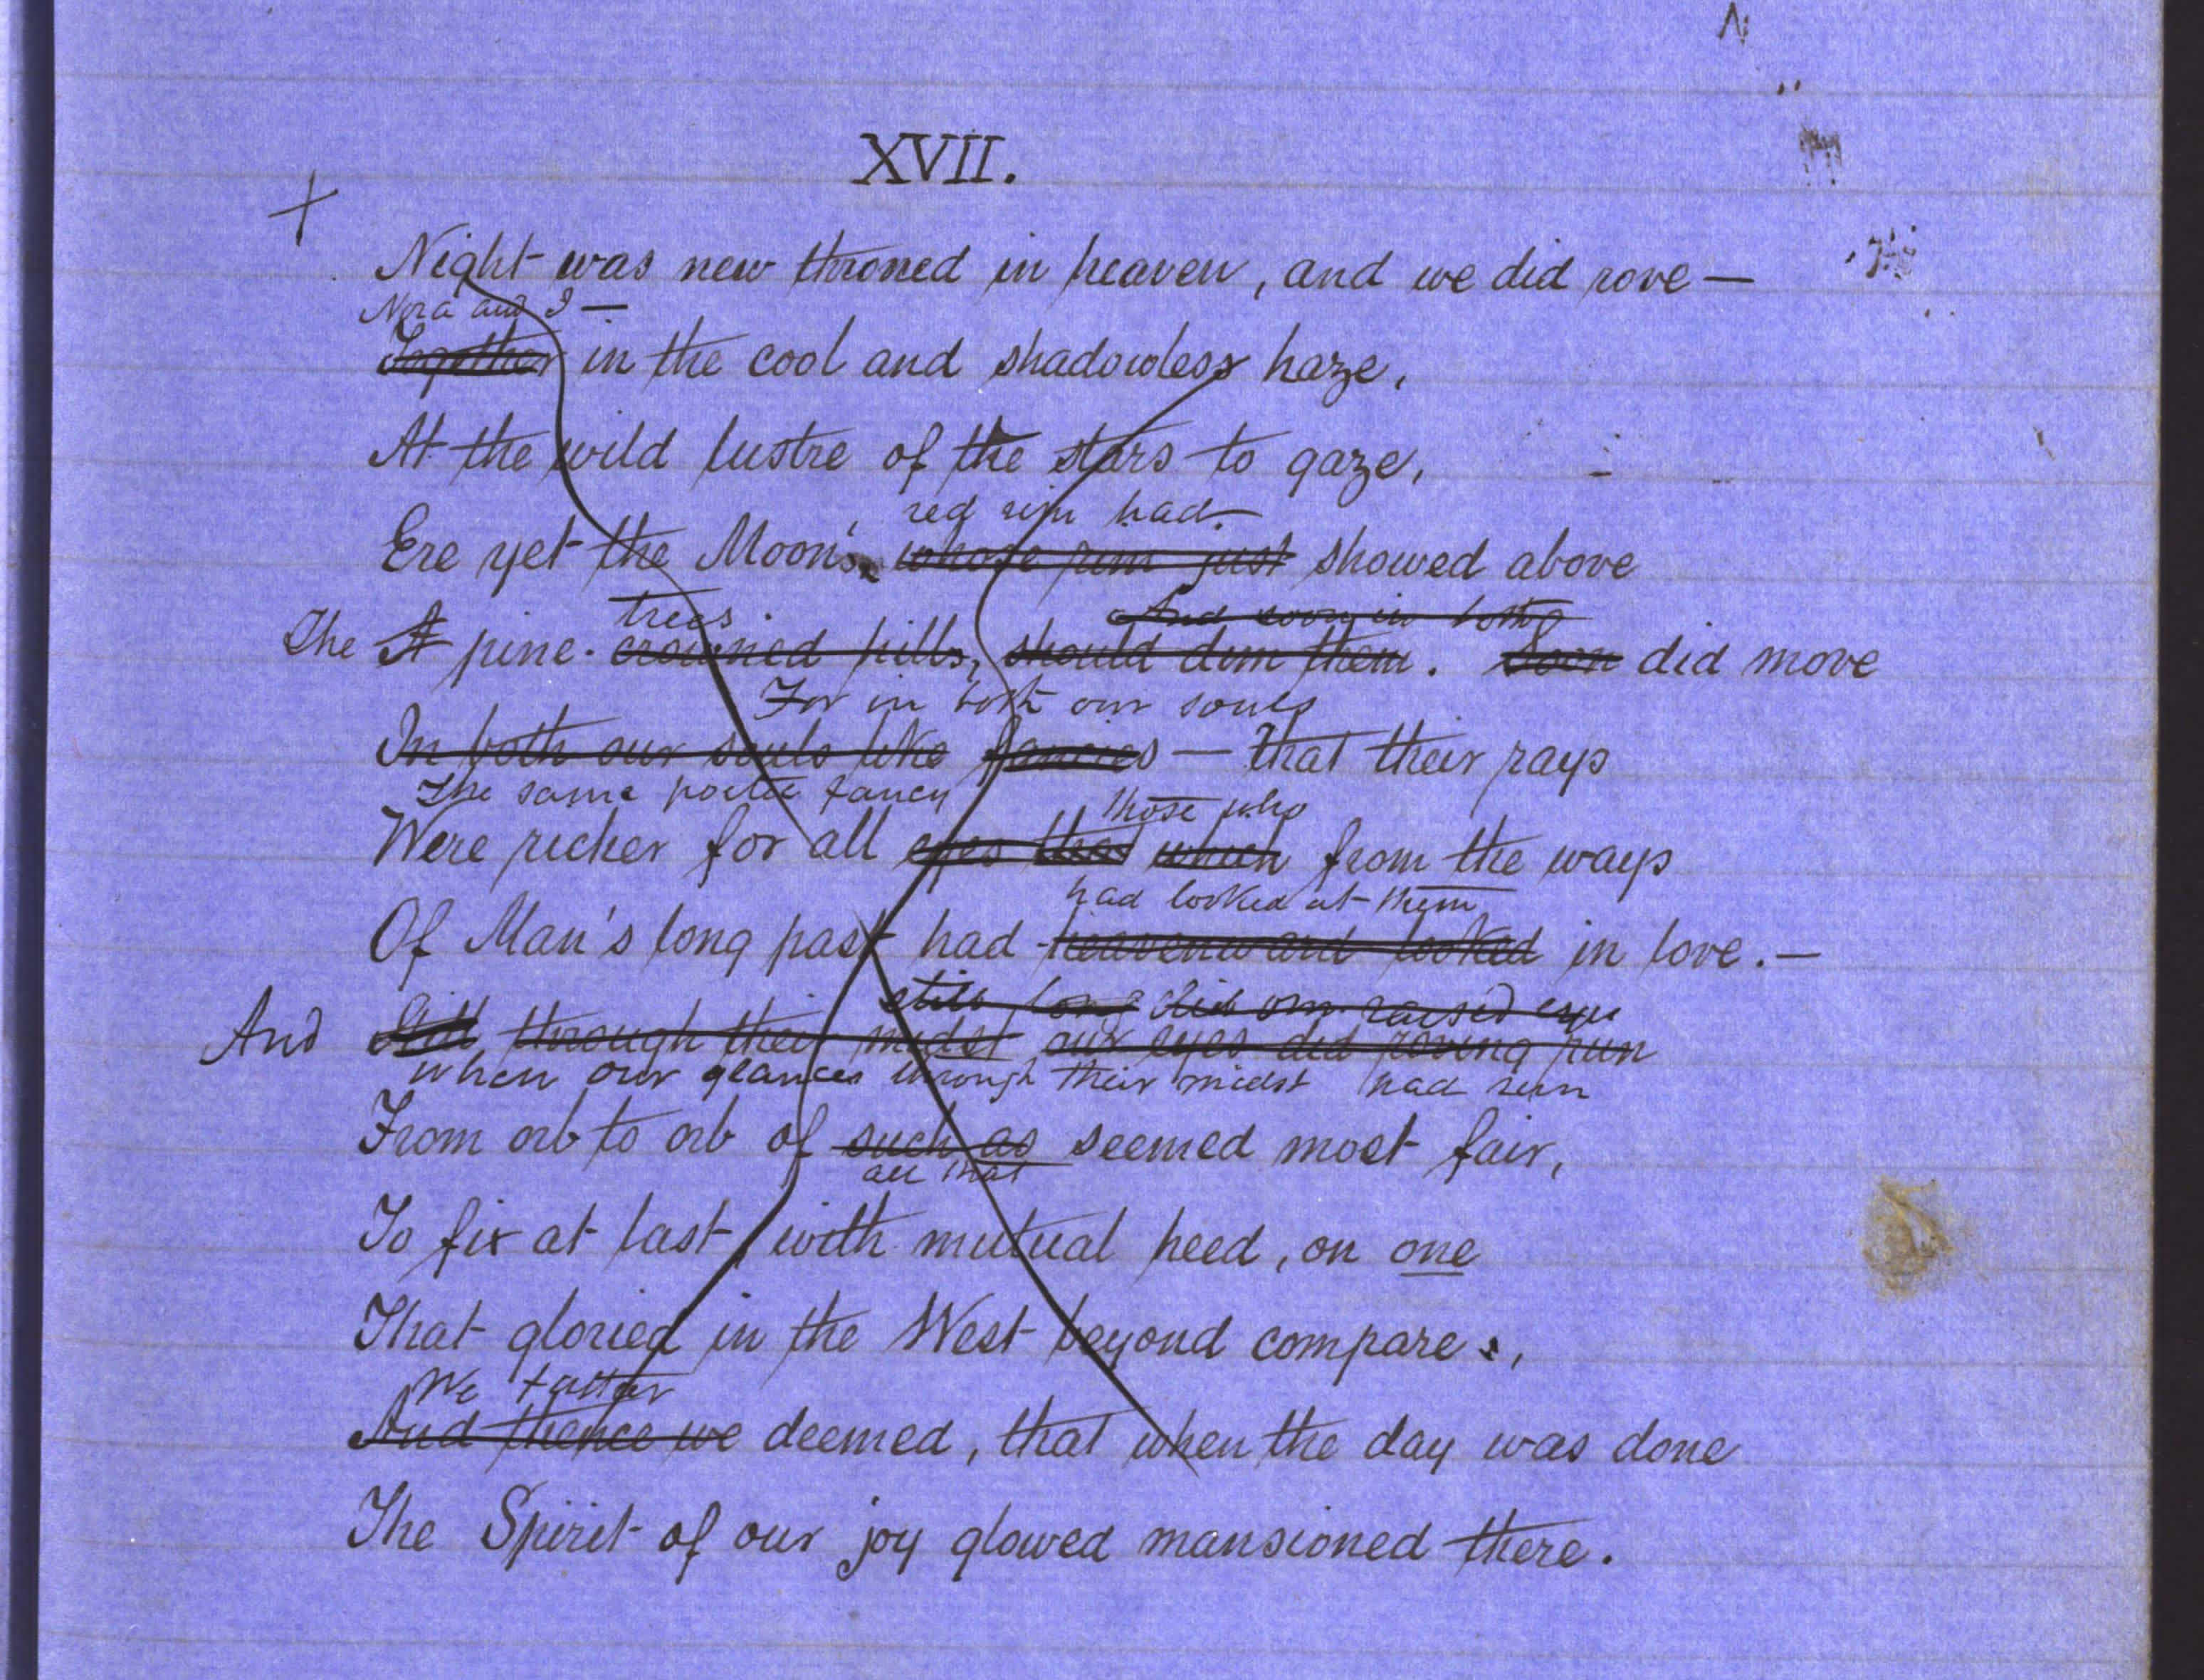 XVII.
Night was new throned in heaven, and we did rove —
Nora and I —
Together in the cool and shadowless haze,
At the wild lustre of the stars to gaze,
red rim had
Ere yet the Moon's whose rim just showed above
trees And soon in both
The A pine-crowned hills, should dim them. Soon did move
For in both our souls
In both our souls like fancies — that their rays
The same poetic fancy those who
Were richer for all eyes that which from the ways
had looked at them
Of Man's long past had heavenward looked in love. —
still long did our raised eyes
And Still through their midst our eyes did roving run
when our glances through their midst had run
From orb to orb of such as seemed most fair,
all that
To fix at last, with mutual heed, on one
That gloried in the West beyond compare,
We
And thence we deemed, that when the day was done
The Spirit of our joy glowed mansioned there.